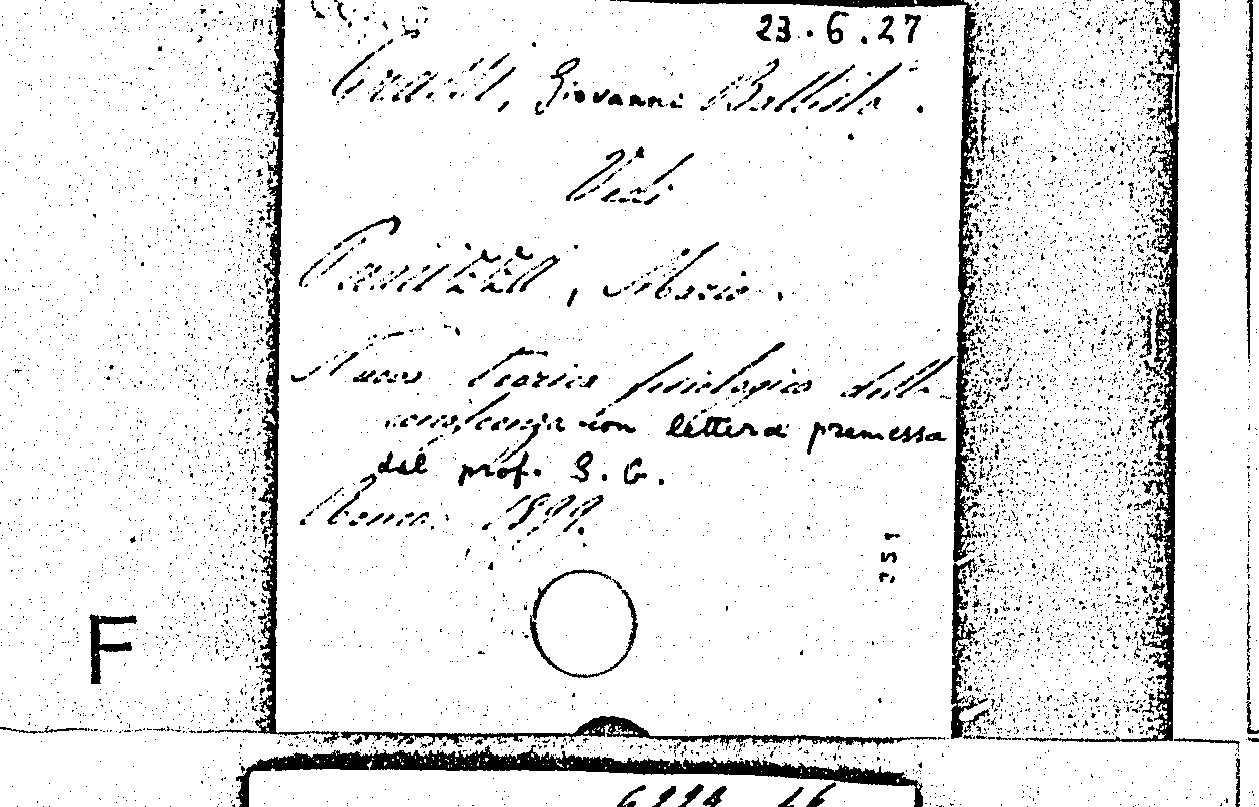 23.6.27
Grassi, Giovanni Battista.
Vedi
Panizza, Mario.
Nuova teorica fisiologica della
conoscenza con lettera premessa
del prof. G. G.
Roma. 1899.
351
F